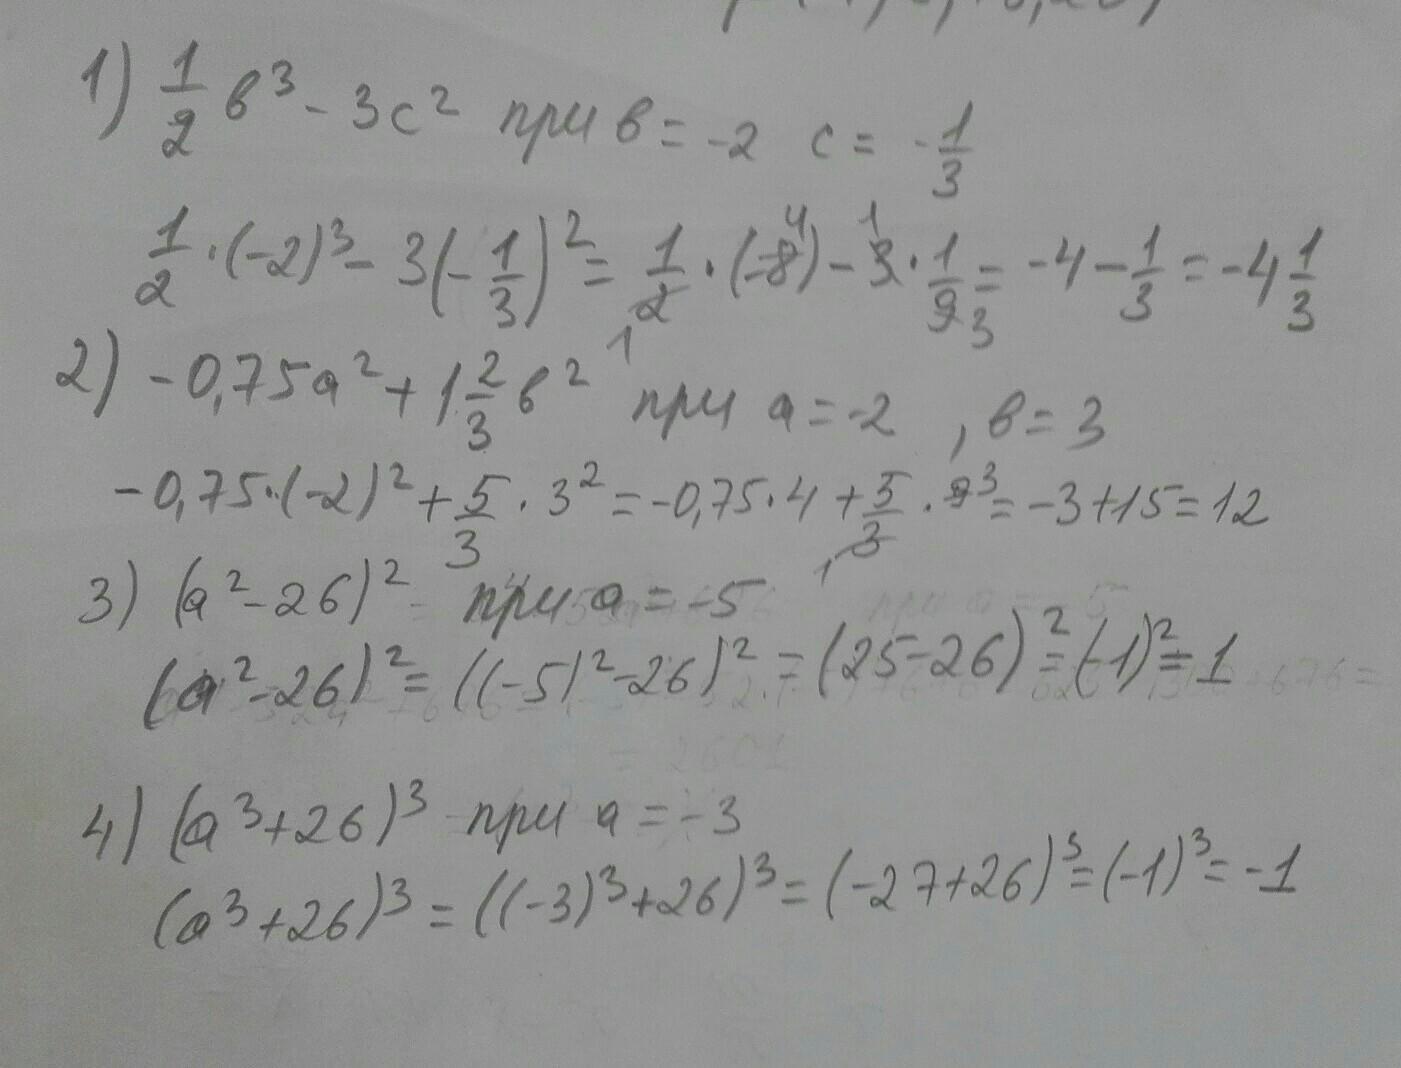 1) 1/2 в³ - 3с² при в = -2 с = -1/3
1/2 · (-2)³ - 3(-1/3)² = 1/2 · (-8) - 3 · 1/9 = -4 - 1/3 = -4 1/3
2) -0,75а² + 1 2/3 в² при а = -2 , в = 3
-0,75·(-2)² + 5/3 · 3² = -0,75·4 + 5/3 · 9 = -3+15 = 12
3) (а² - 26)² при а = -5
(а² - 26)² = ((-5)² - 26)² = (25-26)² = (-1)² = 1
4) (а³ + 26)³ при а = -3
(а³ + 26)³ = ((-3)³ + 26)³ = (-27+26)³ = (-1)³ = -1